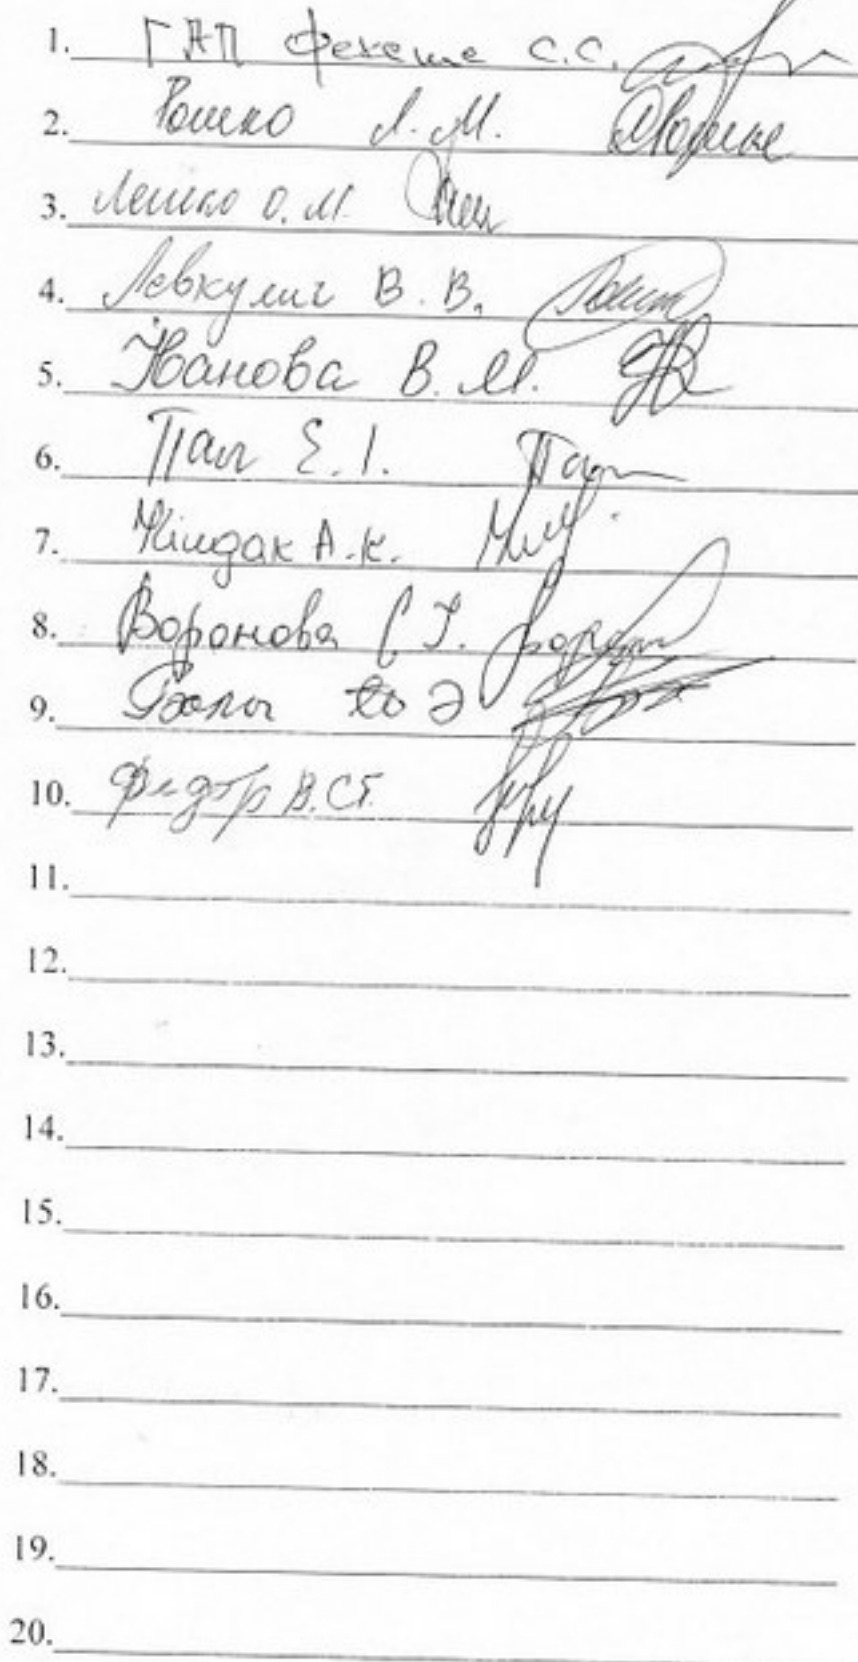 1. ГАП Фекеше С.С.
2. Рошко Л.М.
3. Лешко О.М.
4. Левкулич В.В.
5. Жанова В.М.
6. Пал Е.І.
7. Кіндак А.К.
8. Воронова С.І.
9. Ю Э
10. Федор В.СТ.
11.
12.
13.
14.
15.
16.
17.
18.
19.
20.